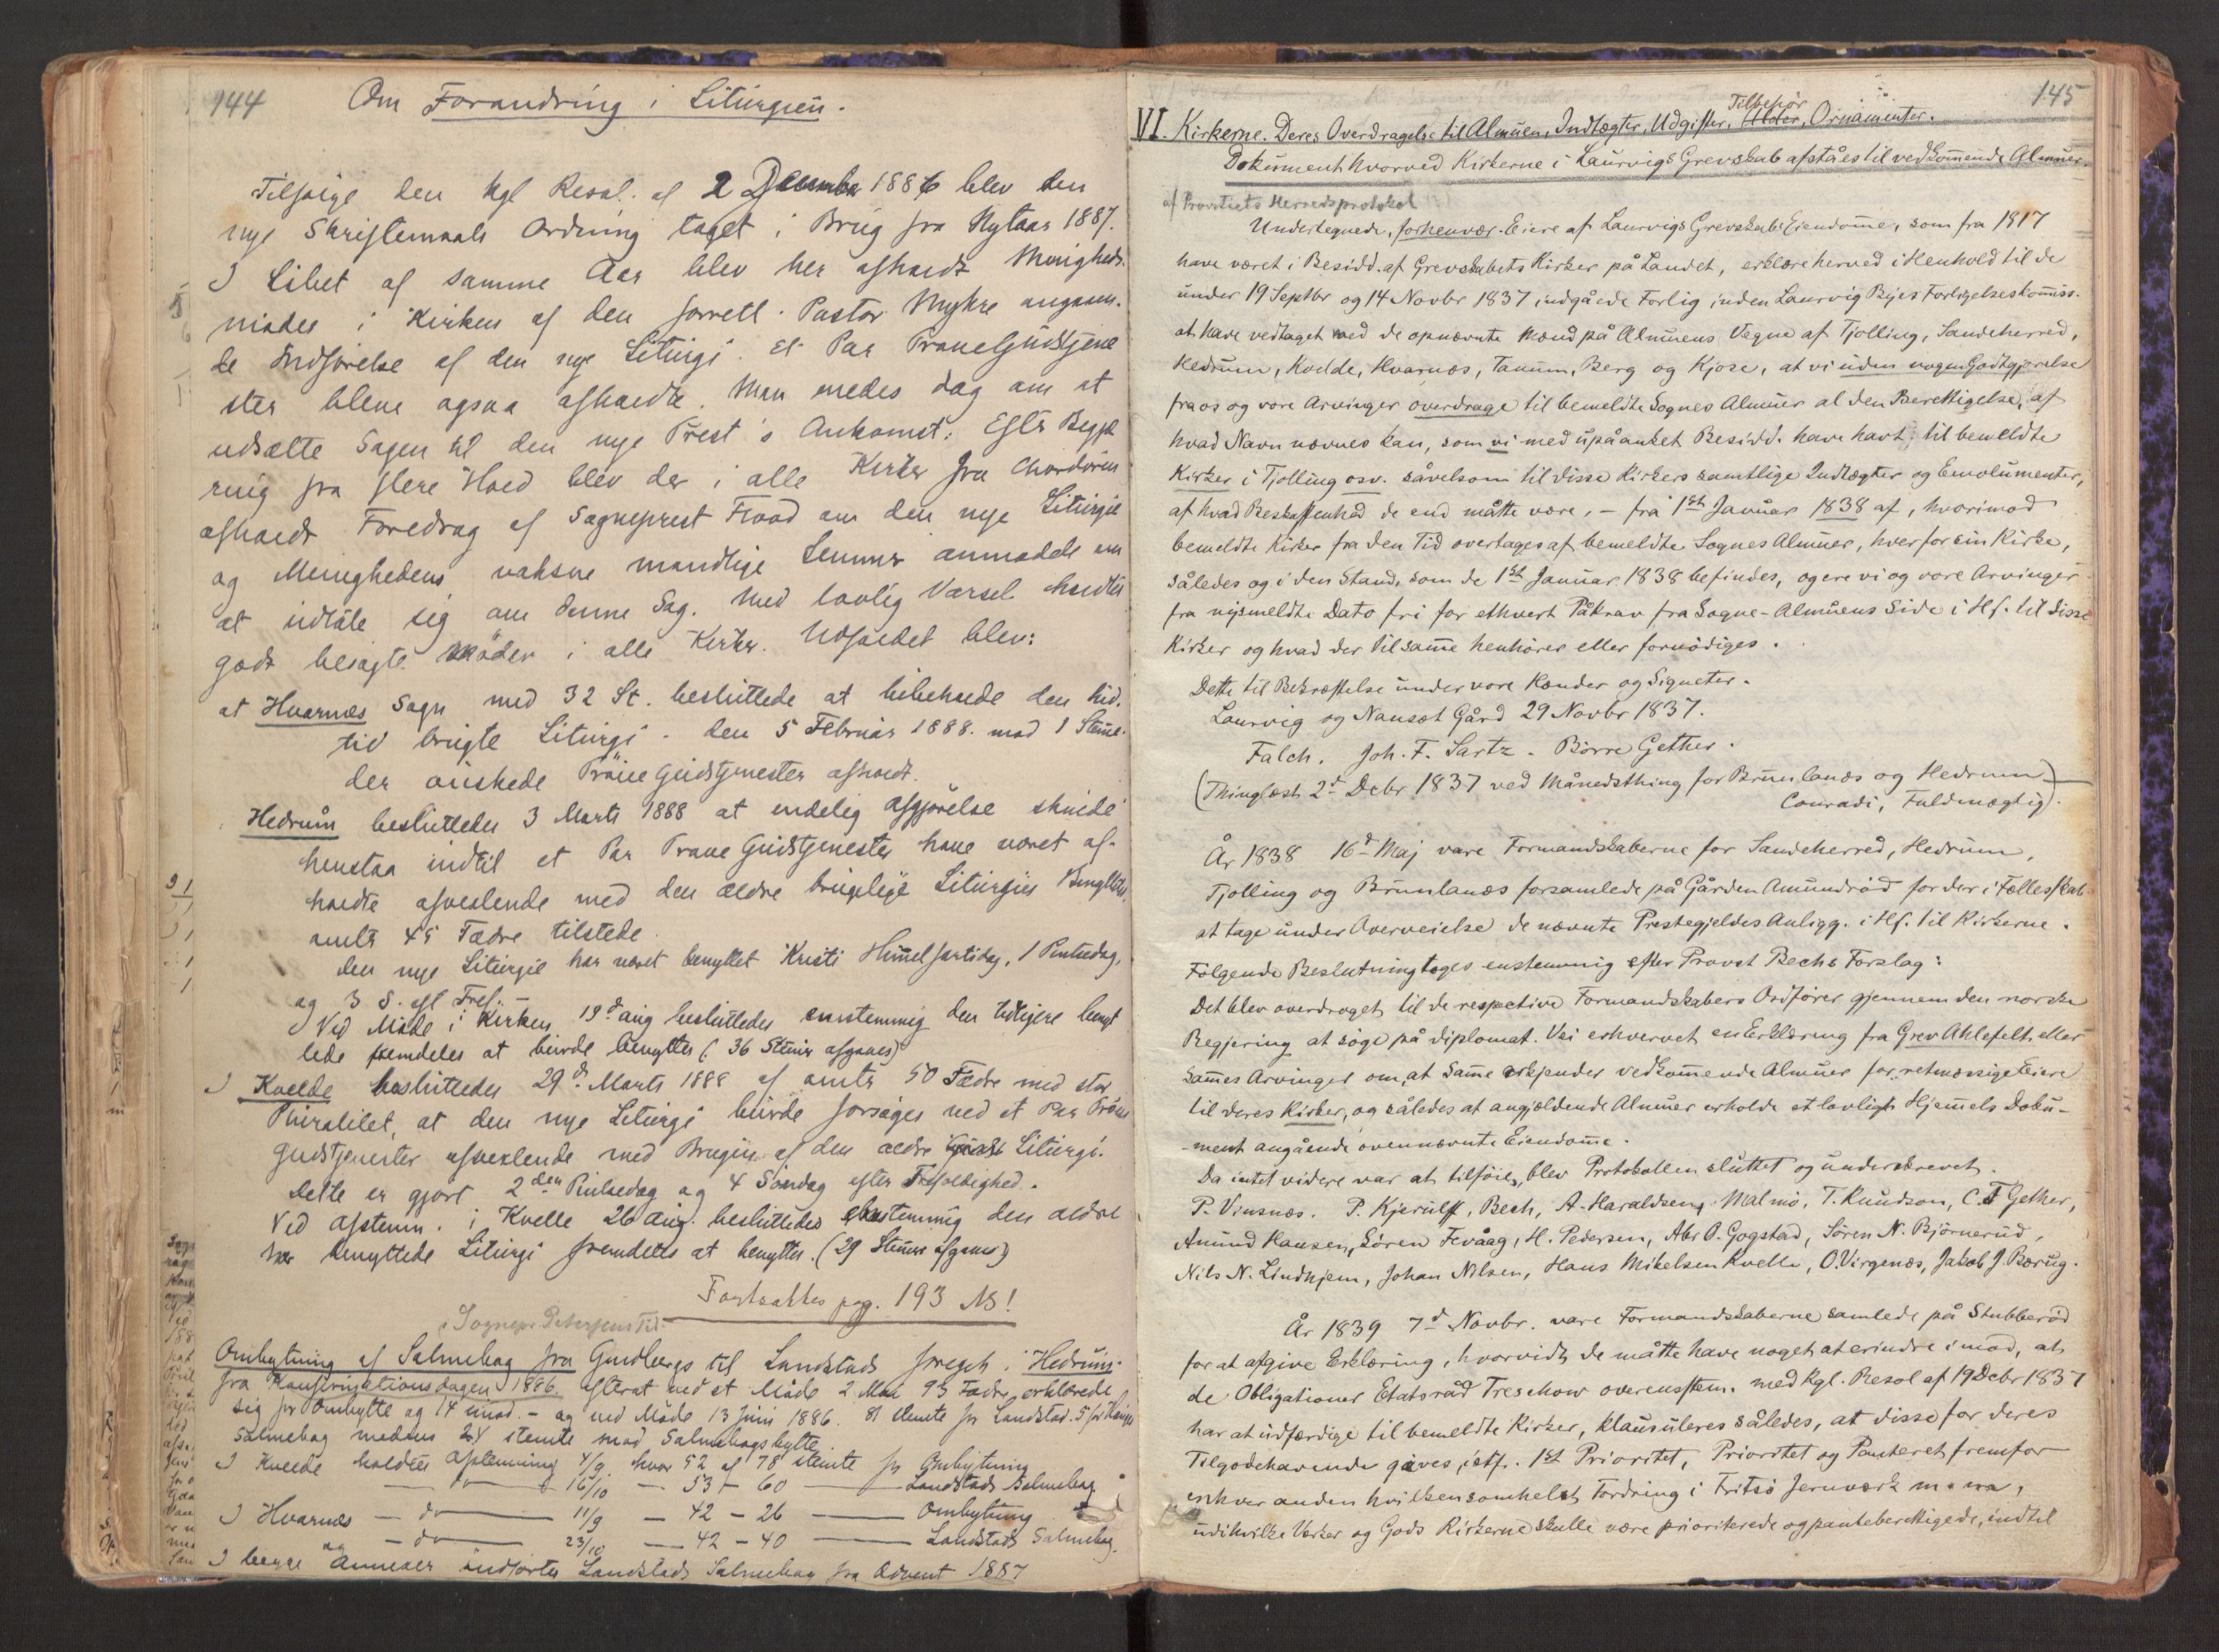 144
Om Forandring i Liturgien.
Tilfølge den kgl Resol. af 2 December 1886 blev den
nye Skriftemaals Ordning taget i Brug fra Nytaar 1887.
I Løbet af samme Aar blev her afholdt Menigheds-
møder i Kirken af den forrett. Pastor Myhre angaaen-
de Indførelse af den nye Liturgi. Et Par Prøve Gudstjene
ster bleve ogsaa afholdte. Man enedes dog om at
udsætte Sagen til den nye Prest's Ankomst. Efter
fra flere Hold blev der i alle Kirker fra Chordøren
afholdt Foredrag af Sogneprest Flood om den nye Liturgie
og Menighedens voksne mandlige Lemmer anmodede om
at udtale sig om denne Sag. Med lovlig Varsel holdtes
godt besøgte Møder i alle Kirker. Udfaldet blev:
at Hvarnes Sogn med 32 St. besluttede at bibeholde den hid-
til brugte Liturgi. den 5 Februar 1888. mod 1 Stemme.
der ønskede Prøve Gudstjenester afholdt.
Hedrum besluttedes 3 Marts 1888 at endelig afgjørelse skulde
henstaa indtil et Par Prøve Gudstjenester have været af-
holdte afvekslende med den ældre brugelige Liturgies Benyttelse,
omtr 45 Fædre tilstede.
den nye Liturgie har været benyttet Kristi Himmelfartsdag, 1 Pintsedag,
og 3 S. eft Tref.
Ved Møde i Kirken 19d aug besluttedes enstemmig den tidligere benyt
tede fremdeles at burde benyttes (36 Stemmer afgaves)
I Kvelde besluttedes 29d. Marts 1888 af omtr 50 Fædre med stor
Pluralitet, at den nye Liturgi burde forsøges ved et Par Prøve
gudstjenester afvekslende med Brugen af den ældre Liturgi.
Dette er gjort 2den Pintsedag og 4 Søndag efter Trefoldighed.
Ved afstemn. i Kvelle 26 aug. besluttedes enstemmig den ældre
her benyttede Liturgi fremdeles at benyttes. (29 Stemmer afgaves)
Fortsættes pag. 193 NB!
i Sognepr. Petersens Tid.
Ombytning af Salmebog fra Guldbergs til Landstads foregik i Hedrum
fra Konfirmationsdagen 1886 efterat ved et Møde 2 Mai 93 Fædre erklærede
sig for Ombytte og 14 imod. - og ved Møde 13 Juni 1886. 81 stemte for Landstad. 5 for Hauges
Salmebog medens 24 stemte mod Salmebogsbytte.
I Kvelde holdtes Afstemning 4/9 hvor 52 af 78 stemte for Ombytning
— do — 16/10 — 53 - 60 — Landstads Salmebog
I Hvarnes — do — 11/9 — 42 - 26 — Ombytning
— do — 23/10 — 42 - 40 — Landstads Salmebog.
I begge Annexer indførtes Landstads Salmebog fra Advent 1887
145
Tilbehør
VI. Kirkerne. Deres Overdragelse til Almuen, Indtægter, Udgifter, Ornamenter.
Dokument hvorved Kirkerne i Laurvigs Grevskab afståes til vedkommende Almuer.
af Provstiets Herredsprotokol
Undertegnede, forhenvær. Eiere af Laurvigs Grevskabs Eiendomme, som fra 1817
have været i Besidd. af Grevskabets Kirker på Landet, erklære herved i Henhold til de
under 19 Septbr og 14 Novbr 1837 indgåede Forlig inden Laurvig Byes Forligelseskomiss.
at have vedtaget med de opnævnte Mænd på Almuens Vegne af Tjølling, Sandeherred,
Hedrum, Kvelde, Hvarnæs, Tanum, Berg og Kjose, at vi uden nogen Godtgjørelse
fra os og vore Arvinger overdrage til bemeldte Sognes Almuer al den Berettigelse, af
hvad Navn nævnes kan, som vi med upåanket Besidd. have havt til bemeldte
Kirker i Tjølling osv. såvelsom til disse Kirkers samtlige Indtægter og Emolumenter,
af hvad Beskaffenhed de end måtte være, - fra 1st Januar 1838 af, hvorimod
bemeldte Kirker fra den Tid overtages af bemeldte Sognes Almuer, hver for sin Kirke,
således og i den Stand, som de 1st Januar 1838 befindes, og ere vi og vore Arvinger
fra nysmeldte Dato fri for ethvert Påkrav fra Sogne-Almuens Side i Hs. til disse
Kirker og hvad der til samme henhører eller fornødiges.
Dette til Bekræftelse under vore Hænder og Signeter.
Laurvig og Nanset Gård 29 Novbr 1837.
Falch. Joh. F. Sartz. Børre Gether.
(Thinglæst 2d Debr 1837 ved Månedsthing for Brunlanæs og Hedrum
Conradi, Fuldmægtig).
År 1838 16d Maj vare Formandskaberne for Sandeherred, Hedrum,
Tjølling og Brunlanæs forsamlede på Gården Amundrød for der i Fællesskab
at tage under Overveielse de nævnte Prestegjeldes Anligg. i Hs. til Kirkerne.
Følgende Beslutning toges enstemmig efter Provst Bechs Forslag:
Det blev overdraget til de respective Formandskabers Ordfører gjennem den norske
Regjering at søge på diplomat. Vei erhvervet en Erklæring fra Grev Ahlefelt eller
Sammes Arvinger om, at Samme erkjender vedkommende Almuer for retmæssige Eiere
til deres Kirker, og således at angjældende Almuer erholde et lovligt Hjemmels Doku-
-ment angående ovennævnte Eiendomme.
Da intet videre var at tilføie, blev Protokollen sluttet og underskrevet.
P. Vinsnæs. P. Kjerulff, Bech, A. Haraldsen, Malmø, T. Knudson, C. F Gether,
Amund Hansen, Søren Fevaag, H. Pedersen, Abr O. Gogstad, Søren N. Bjørnerud,
Nils N. Lindhjem, Johan Nilsen, Hans Mikelsen Kvelle, O. Virgenæs, Jakob J. Bærug.
År 1839 7d Novbr. vare Formandskaberne samlede på Stubberød
for at afgive Erklæring, hvorvidt de måtte have noget at erindre imod, at
de Obligationer Etatsråd Treschow overensstem. med kgl. Resol af 19 Debr 1837
har at udfærdige til bemeldte Kirker, klausuleres således, at disse for deres
Tilgodehavende gives, istf. 1st Prioritet, Prioritet og Panteret fremfor
enhver anden hvilkensomhelst Fordring i Fritsø Jernværk m. m.,
udi hvilke Værker og Gods Kirkerne skulle være prioriterede og panteberettigede, indtil